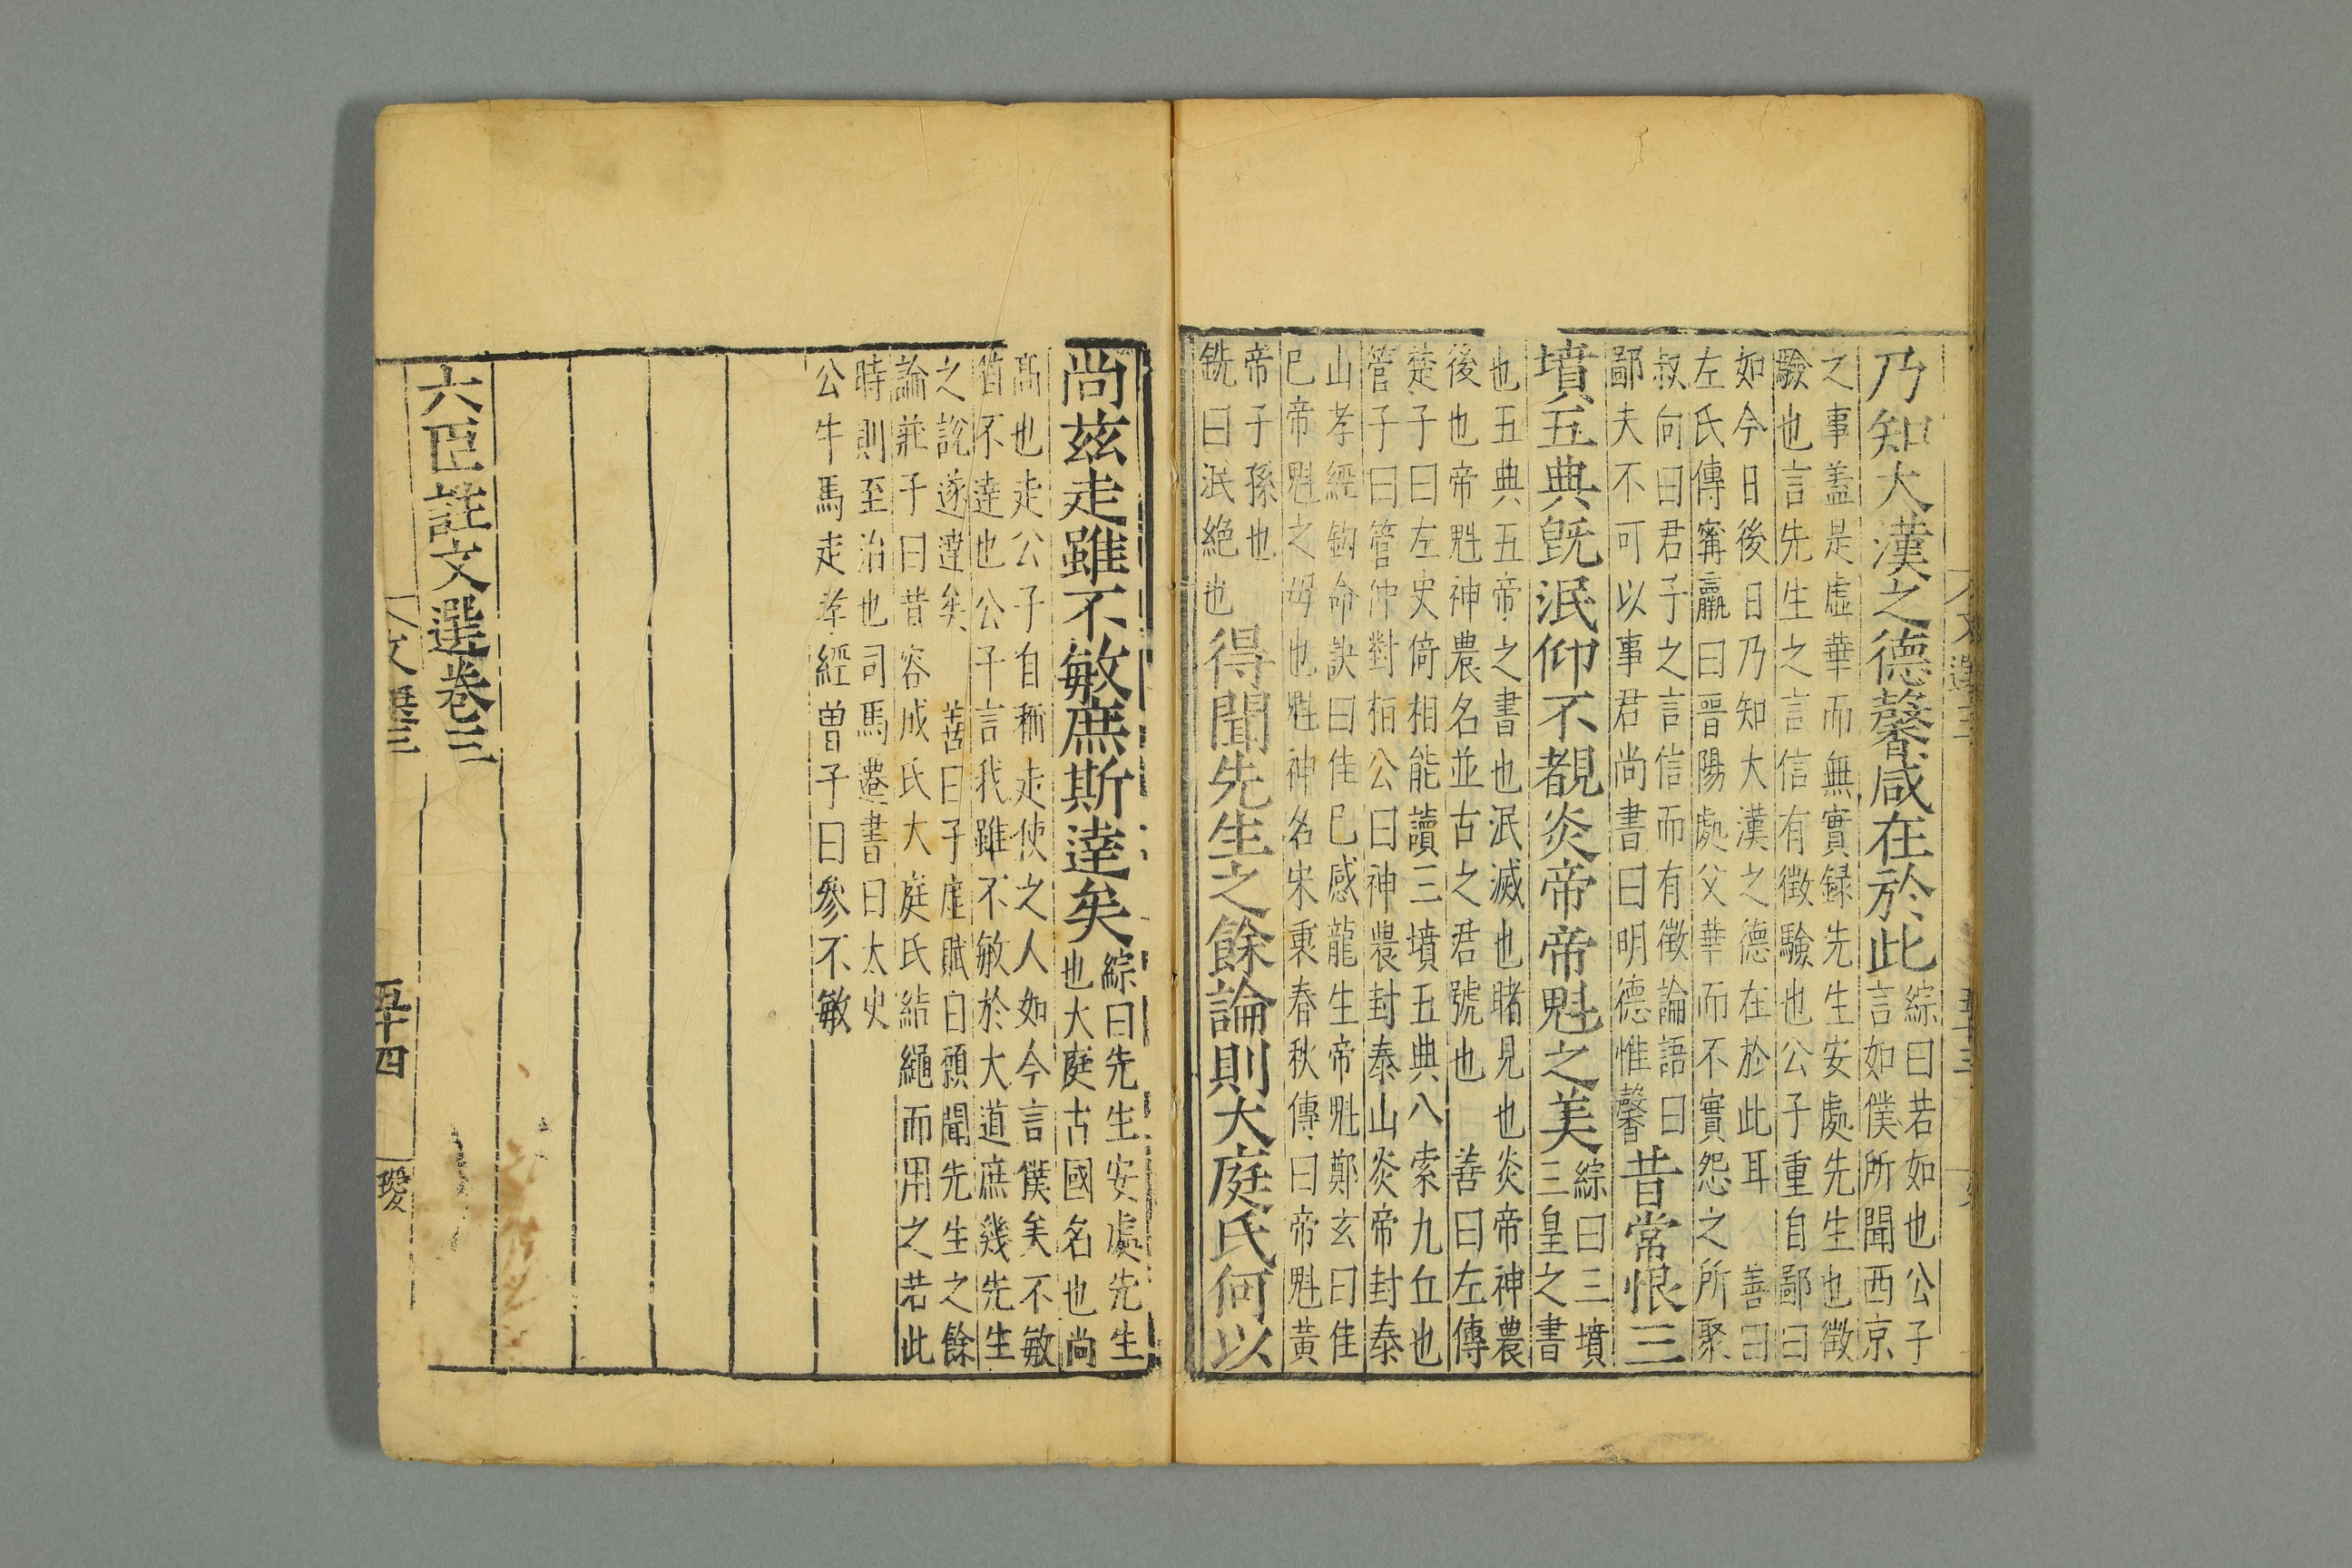 乃知大漢之德馨咸在於此綜曰若如也公子言如僕所聞西京
之事盖是虛華而無實録先生安處先生也徵
驗也言先生之言信有徵驗也公子重自鄙曰
如今日後日乃知大漢之德在於此耳善曰
左氏傳寗羸曰晉陽處父華而不實怨之所聚
叔向曰君子之言信而有徵論語曰
鄙夫不可以事君尚書曰明德惟馨昔常恨三
墳五典旣泯仰不覩炎帝帝魁之美綜曰三墳三皇之書
也五典五帝之書也泯滅也睹見也炎帝神農
後也帝魁神農名並古之君號也善曰左傳
楚子曰左史倚相能讀三墳五典八索九丘也
管子曰管仲對栢公曰神農封泰山炎帝封泰
山孝經鈎命訣曰佳巳感龍生帝魁鄭玄曰佳
巳帝魁之母也魁神名宋衷春秋傳曰帝魁黃
帝子孫也
銑曰泯絶也得聞先生之餘論則大庭氏何以
尚茲走雖不敏庶斯達矣綜曰先生安處先生也大庭古國名也尚
髙也走公子自稱走使之人如今言僕矣不敏
猶不達也公子言我雖不敏於大道庶幾先生
之說遂達矣善曰子虛賦曰願聞先生之餘
論莊子曰昔容成氏大庭氏結繩而用之若此
時則至治也司馬遷書曰太史
公牛馬走孝經曾子曰參不敏
六臣註文選卷三
文選三
五十四
瓊